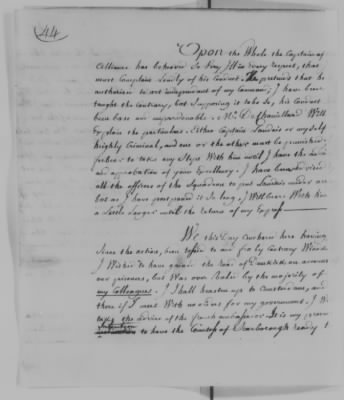 44
Upon the Whole the Captain of
Alliance has behaved So Very Ill in every respect, that
must Complain loudly of his Conduct. He pretends that he
authorised to act independant of my Command; I have been
taught the contrary, but Supposing it to be So, his Conduct
been base and unpardonable. M. De Chamillard Will
Explain the particulars. Either Captain Landais or myself
highly Criminal, and one or the other must be punished.
forbear to take any Steps With him until I have the advice
and approbation of your Excellency. I have been advised
all the officers of the Squadron to put Landais under arrest
but as I have postponed it So long, I Will bear With him
a Little Longer until the return of my Express
We this Day anchored here having
Since the action, been tossed to and fro by Contrary Winds
I Wished to have gained the road of Dunkirk on account
our prisoners, but Was over Ruled by the majority of
my Colleagues. I Shall hasten up to Amsterdam, and
there if I meet With no orders for my government, I W
take the advice of the french ambassador. It is my present
Intention to have the Countess of Scarborough ready t